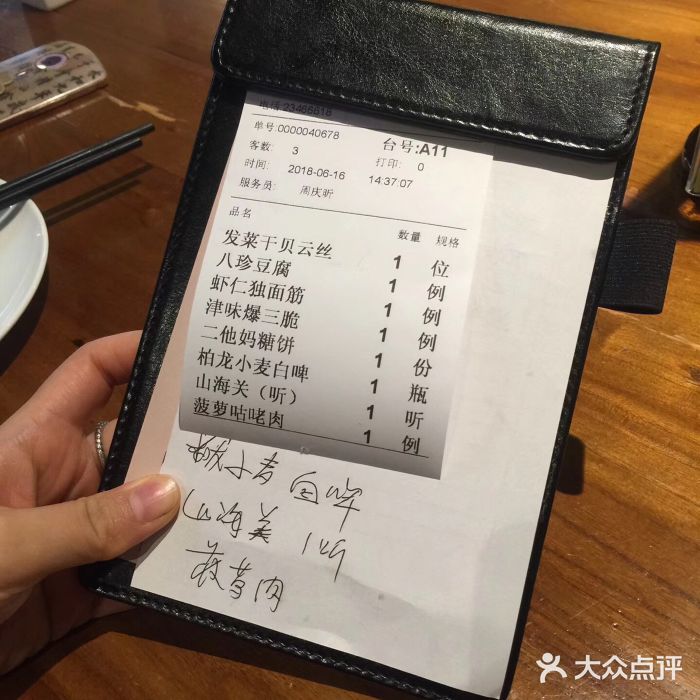 电话:23466818
单号:0000040678 台号:A11
客数: 3 打印: 0
时间: 2018-06-16 14:37:07
服务员: 周庆昕
品名 数量 规格
发菜干贝云丝 1 位
八珍豆腐 1 例
虾仁独面筋 1 例
津味爆三脆 1 例
二他妈糖饼 1 份
柏龙小麦白啤 1 瓶
山海关（听） 1 听
菠萝咕咾肉 1 例
小麦白啤
山海关 1听
肉
大众点评